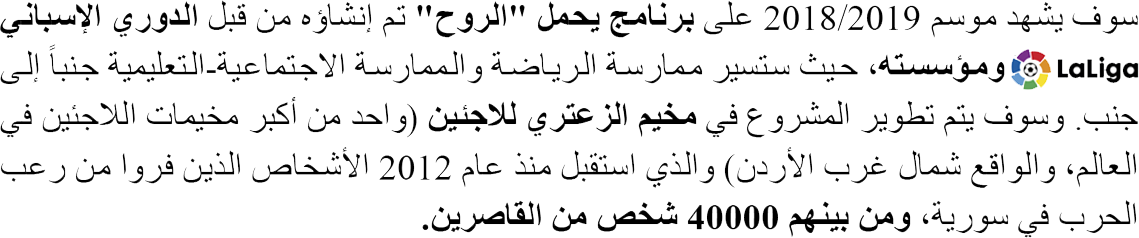 سوف يشهد موسم 2018/2019 على برنامج يحمل "الروح" تم إنشاؤه من قبل الدوري الإسباني
LaLiga ومؤسسته، حيث ستسير ممارسة الرياضة والممارسة الاجتماعية-التعليمية جنباً إلى
جنب. وسوف يتم تطوير المشروع في مخيم الزعتري للاجئين (واحد من أكبر مخيمات اللاجئين في
العالم، والواقع شمال غرب الأردن) والذي استقبل منذ عام 2012 الأشخاص الذين فروا من رعب
الحرب في سورية، ومن بينهم 40000 شخص من القاصرين.